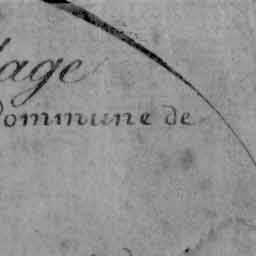 lage
Commune de